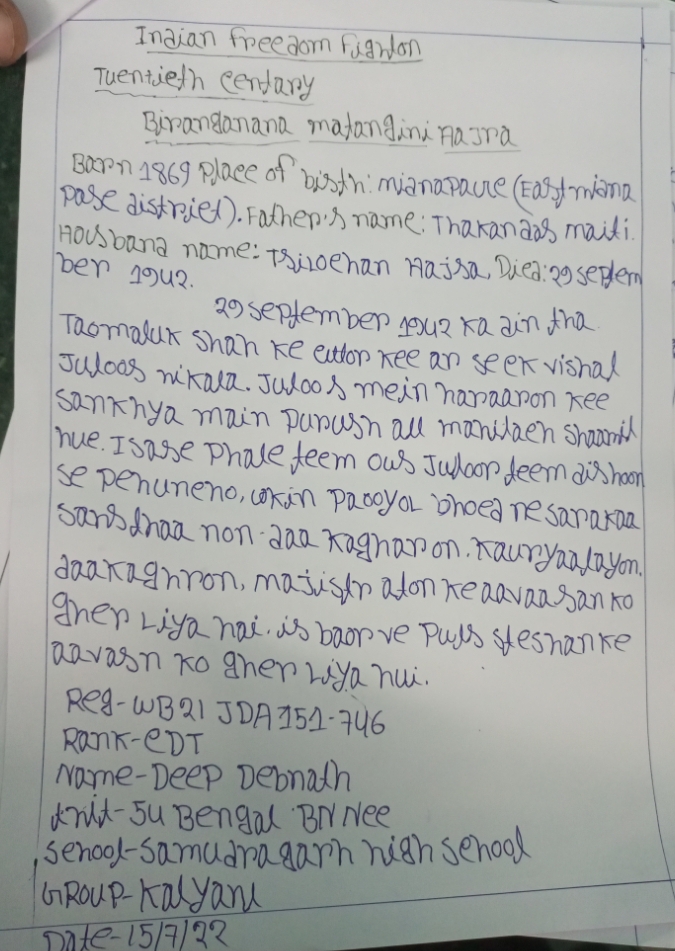 Indian freedom Fighton
Tuentieth centary
Biranganana matangini Hajra
Barn 1869 place of bisth: mianapaure (East miana
pase district). Father's name: Thakandas maiti.
Housband name: Tsiloehan Hajsa, Died: 29 septem
ber 1942.
29 september 1942 ka din tha.
Taomaluk shah ke
Juloos nikala. Juloos mein haraaron kee
sankhya main purush au mahilaen shaamil
hue. Isase phale teem ous Juloor teem dishoon
se pehuneno, lokin
non-daa kagharon. Kauryaalayon,
daakaghron, majistr aton ke aavaasan ko
gher Liya hai. is baor ve puls steshan ke
aavasn ko gher Liya hui.
Reg-WB21 JDA 151-746
Rank-CDT
Name-Deep Debnath
Unit-54 Bengal BN Nee
school-Samudragarh high school
GROUP-Kalyani
Date-15/7/22